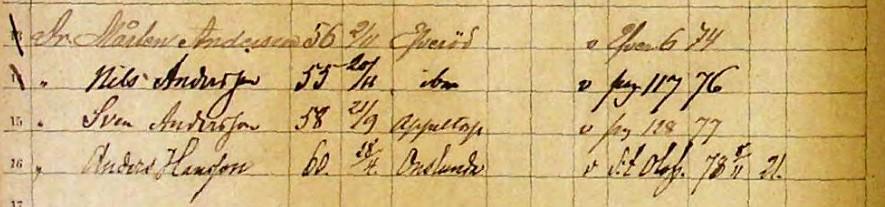 13 Dr Mårten Andersson 56 2/11 Hverröd v Hver. 6 74
14 " Nils Andersson 55 20/11 ibm v pag 117 76
15 " Sven Andersson 58 21/9 v pag 128 77
16 " Anders Hansson 60. 28/4 Onslunda v S:t Olof. 78 21.
17